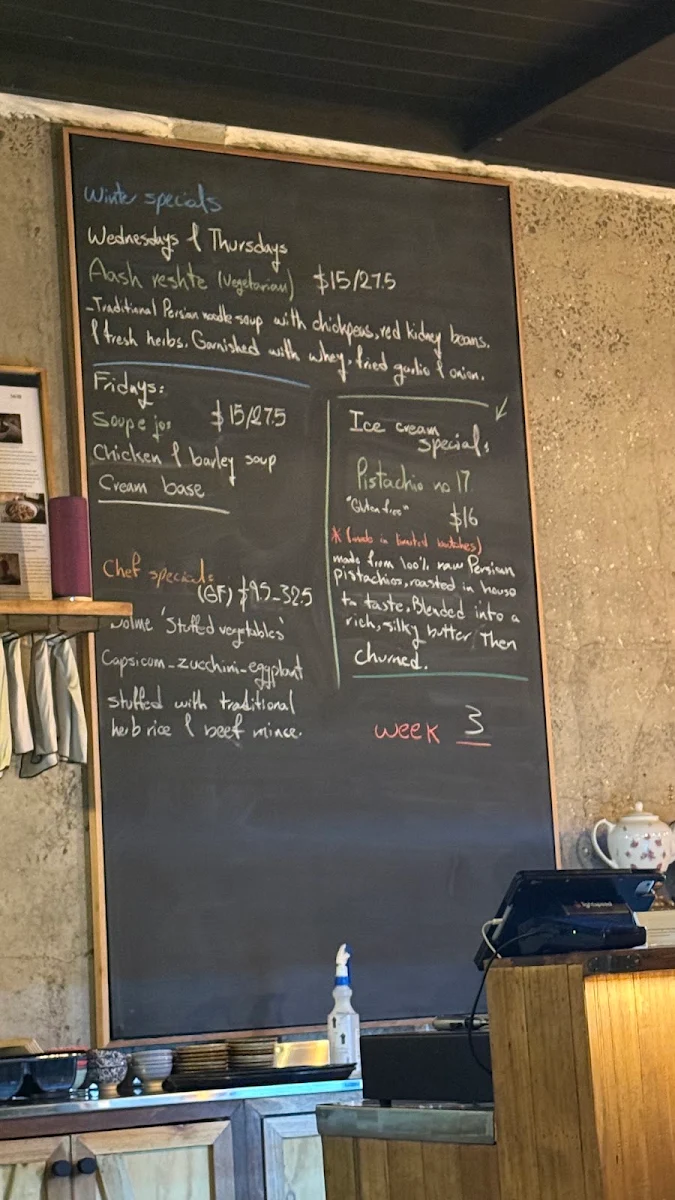 Winter specials
Wednesdays & Thursdays
Aash reshte (Vegetarian) $15/27.5
-Traditional Persian noodle soup with chickpeas, red kidney beans,
& fresh herbs. Garnished with whey, fried garlic & onion.
Fridays:
Soupe jo: $15/27.5
Chicken & barley soup
Cream base
Chef specials:
(GF) $ 95-32.5
Dolme 'Stuffed vegetables'
Capsicum-zucchini-eggplant
stuffed with traditional
herb rice & beef mince.
Ice cream
special:
Pistachio no 17
"Gluten free"
$16
* (made in limited batches)
made from 100% raw Persian
pistachios, roasted in house
to taste. Blended into a
rich, silky butter Then
churned.
week 3
lightspeed